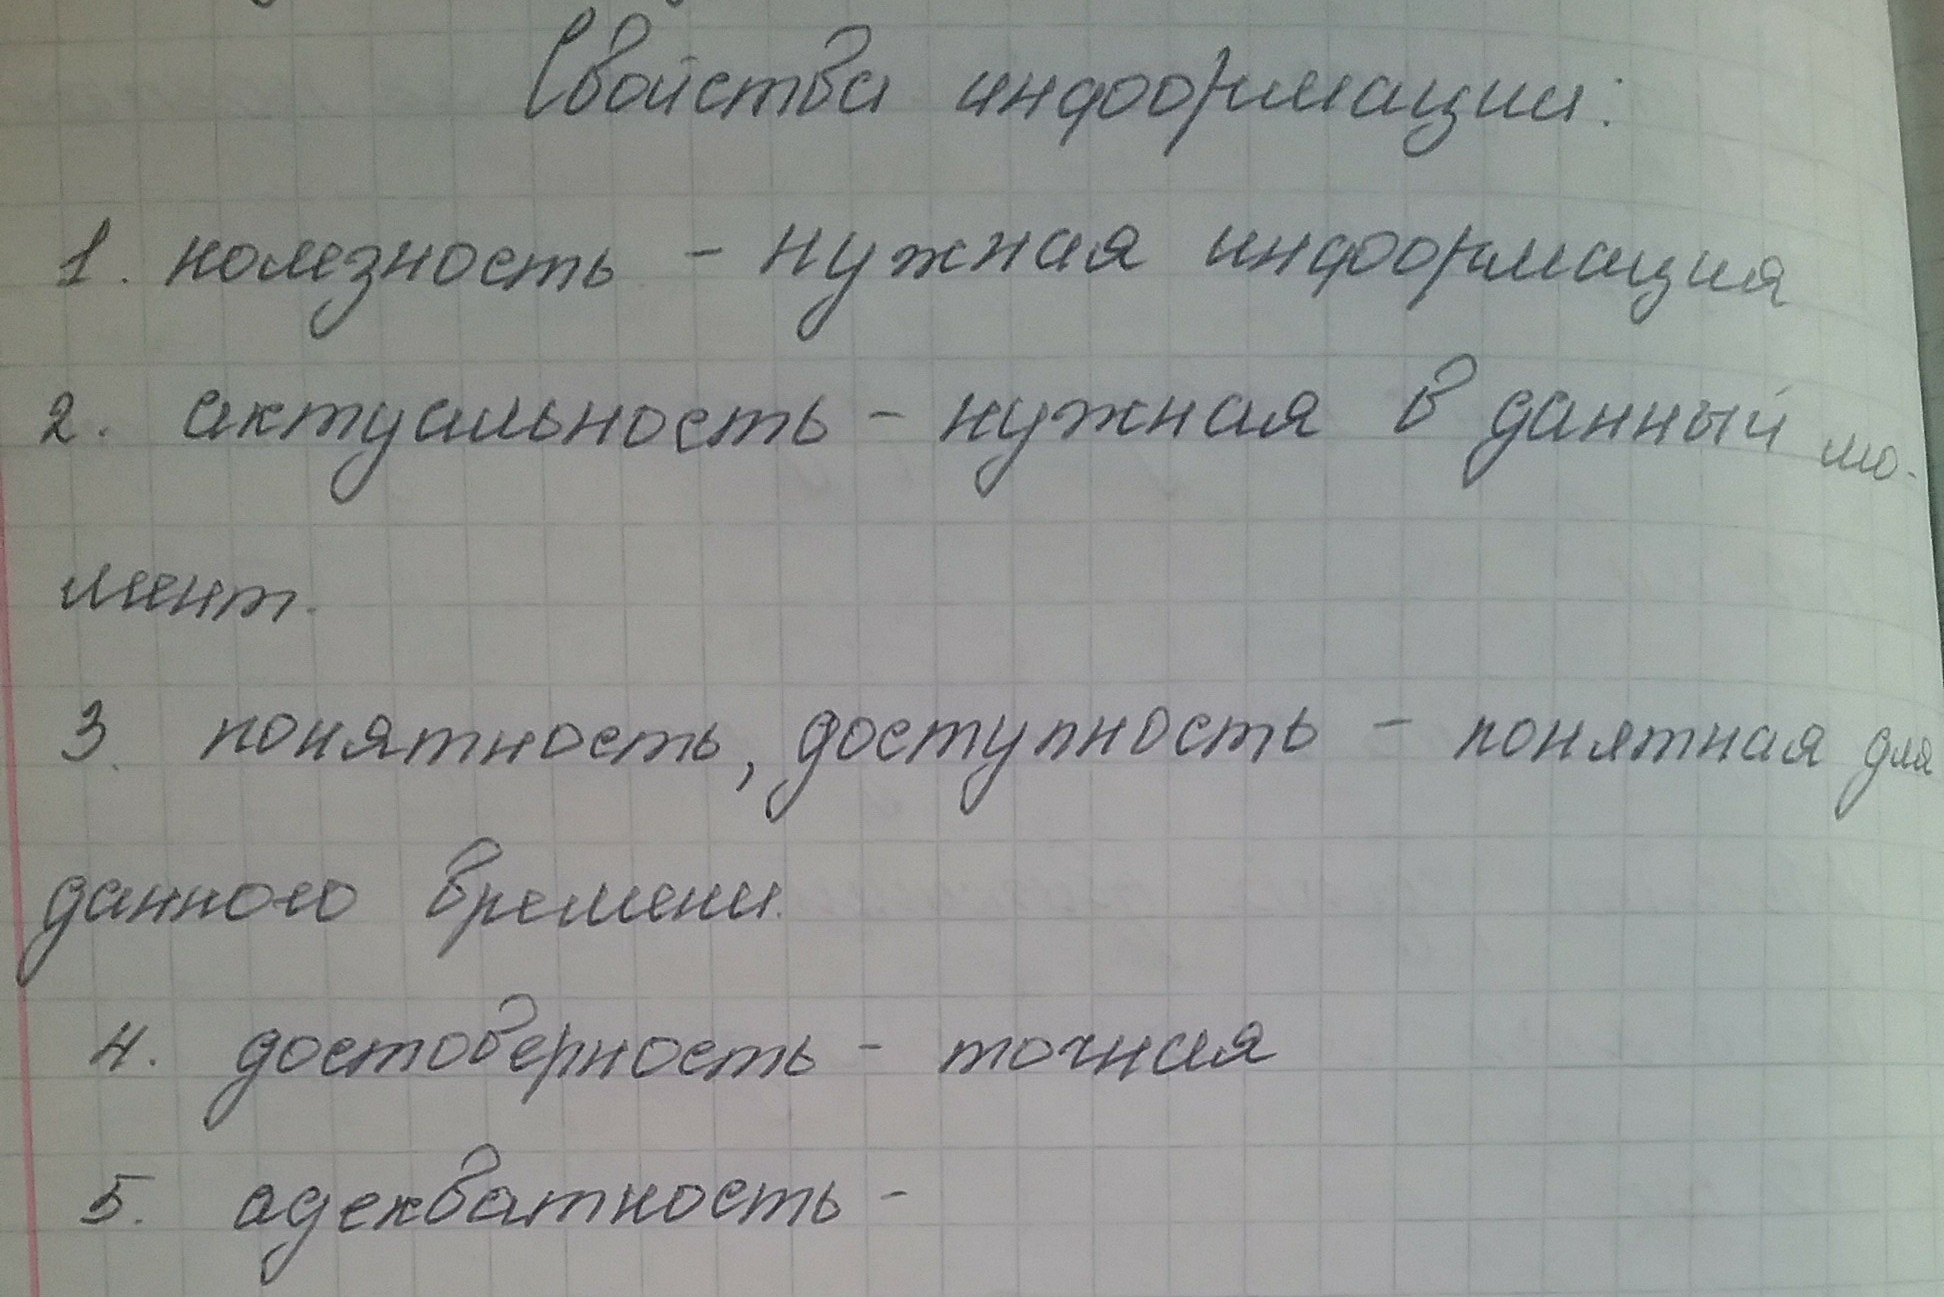 Свойства информации:
1. полезность - нужная информация
2. актуальность - нужная в данный мо-
мент.
3. понятность, доступность - понятная для
данного времени.
4. достоверность - точная
5. адекватность -